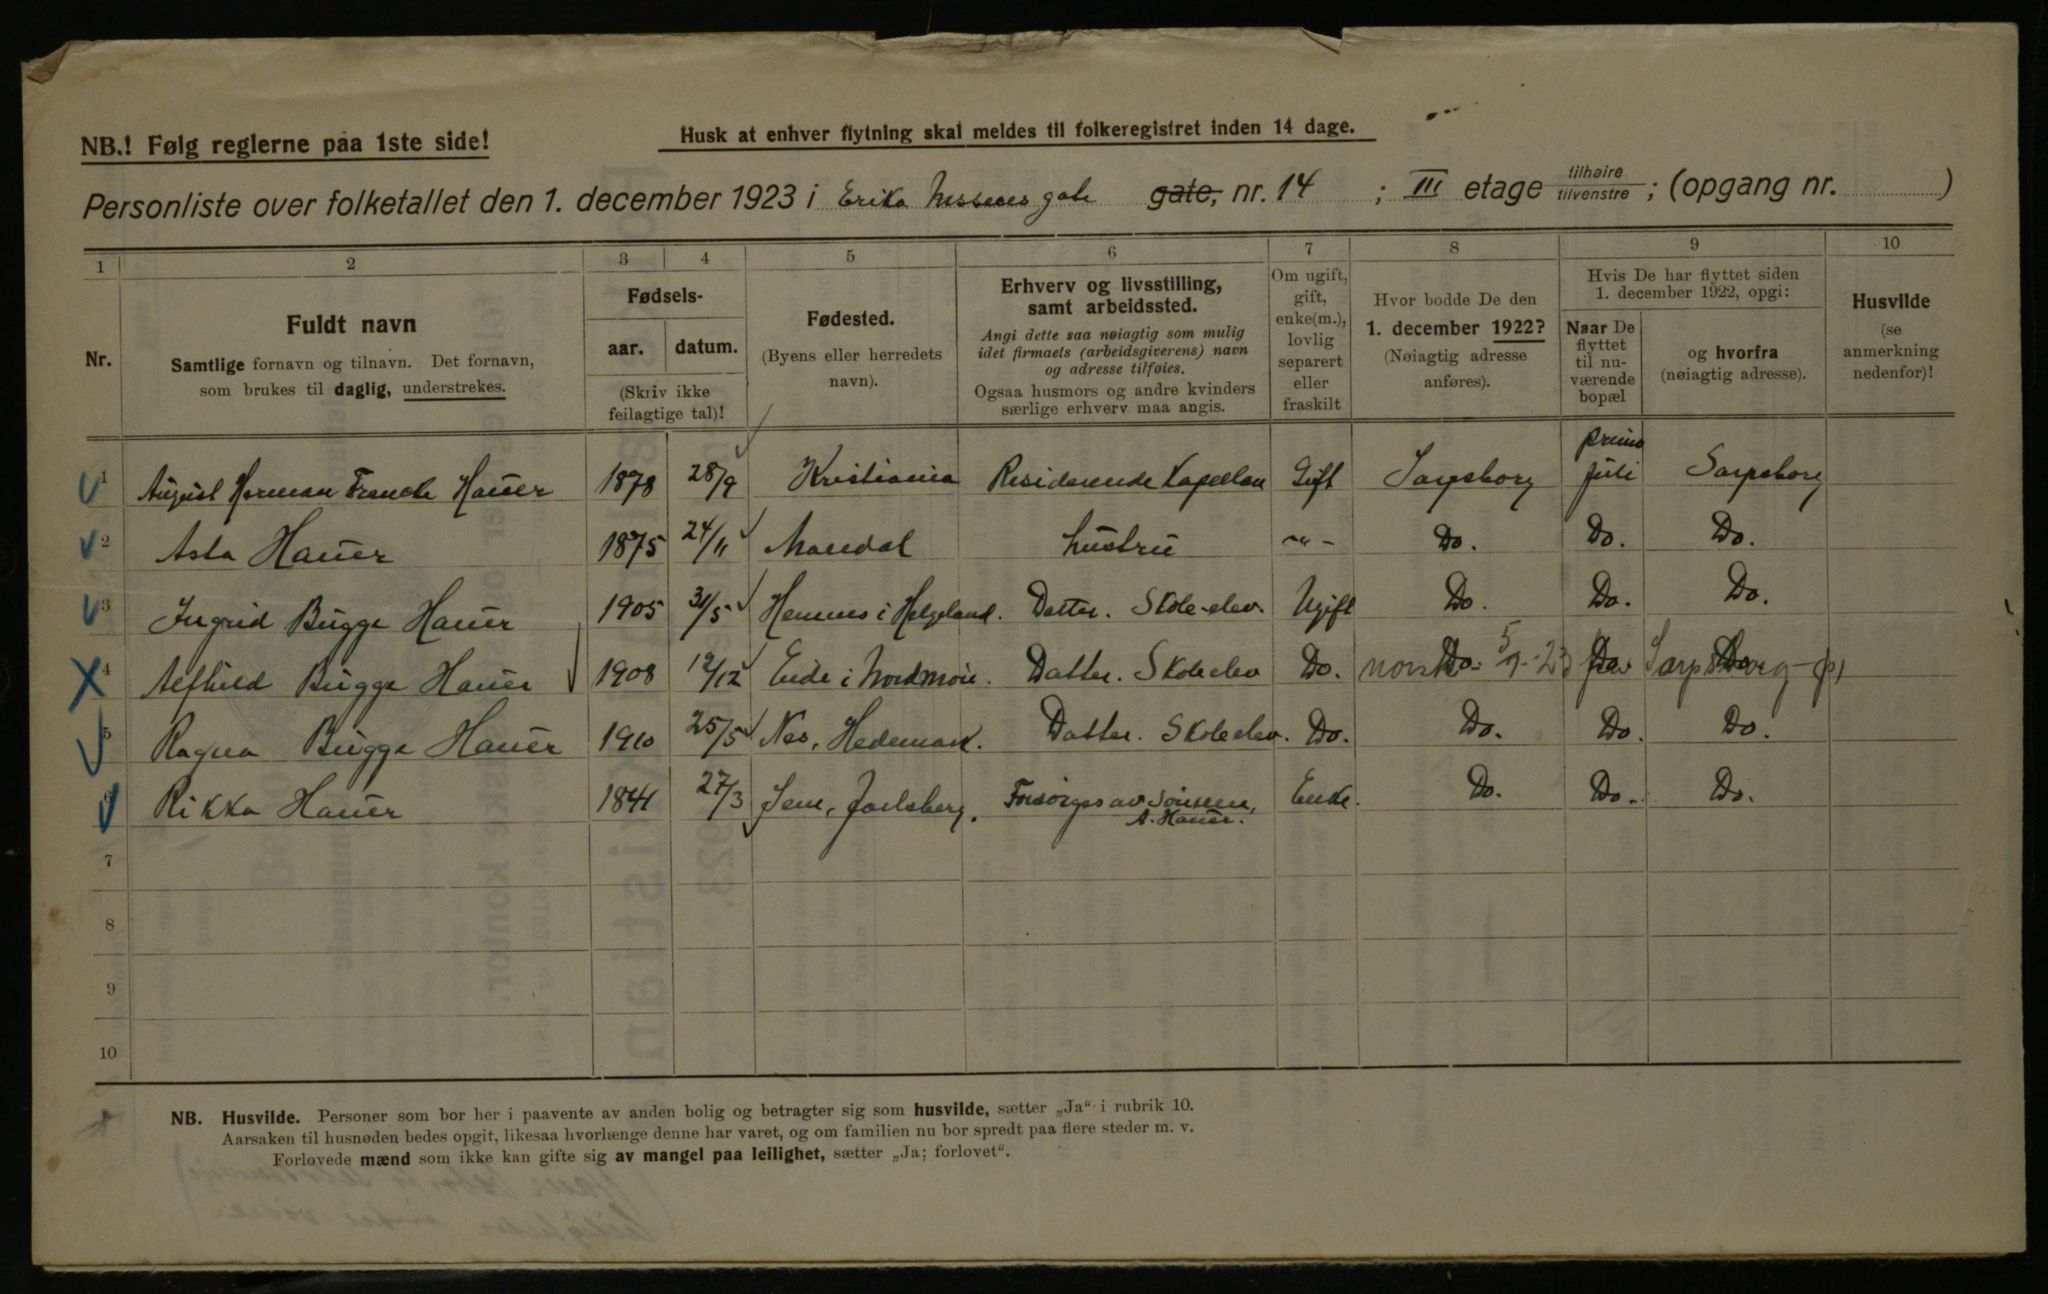 NB.! Følg reglerne paa 1ste side!
Husk at enhver flytning skal meldes til folkeregistret inden 14 dage.
Personliste over folketallet den 1. december 1923 i Erika Nissens gate gate, nr. 14 ; III etage tilhøire tilvenstre ; (opgang nr. )
1 2 3 4 5 6 7 8 9 10
Nr.
Fuldt navn
Samtlige fornavn og tilnavn. Det fornavn,
som brukes til daglig, understrekes.
Fødsels-
aar. datum.
(Skriv ikke
feilagtige tal)!
Fødested.
(Byens eller herredets
navn).
Erhverv og livsstilling,
samt arbeidssted.
Angi dette saa nøiagtig som mulig
idet firmaets (arbeidsgiverens) navn
og adresse tilføies.
Ogsaa husmors og andre kvinders
særlige erhverv maa angis.
Om ugift,
gift,
enke(m.),
lovlig
separert
eller
fraskilt
Hvor bodde De den
1. december 1922?
(Nøiagtig adresse
anføres).
Hvis De har flyttet siden
1. december 1922, opgi:
Naar De
flyttet
til nu-
værende
bopæl
og hvorfra
(nøiagtig adresse).
Husvilde
(se
anmerkning
nedenfor)!
1 August Herman Francke Hauer 1878 28/9 Kristiania Residerende Kapellan Gift Sarpsborg primo juli Sarpsborg
2 Asta Hauer 1875 24/11 Mandal hustru -"- Do. Do. Do.
3 Ingrid Bugge Hauer 1905 31/5 Hemnes i Helgeland. Datter. Skole-elev. Ugift Do. Do. Do.
4 Alfhild Bugge Hauer 1908 12/12 Eide i Nordmøre. Datter. Skoleelev Do. Do. norsk Do. Do. Sarpsborg
5 Ragna Bugge Hauer 1910 25/5 Nes, Hedemark. Datter. Skoleelev. Do. Do. Do. Do.
6 Rikka Hauer 1841 27/3 Sem, Jarlsberg. Forsörges av Sönnen, Enke. Do. Do. Do.
A. Hauer.
7
8
9
10
NB. Husvilde. Personer som bor her i paavente av anden bolig og betragter sig som husvilde, sætter „Ja“ i rubrik 10.
Aarsaken til husnøden bedes opgit, likesaa hvorlænge denne har varet, og om familien nu bor spredt paa flere steder m. v.
Forlovede mænd som ikke kan gifte sig av mangel paa leilighet, sætter „Ja; forlovet“.